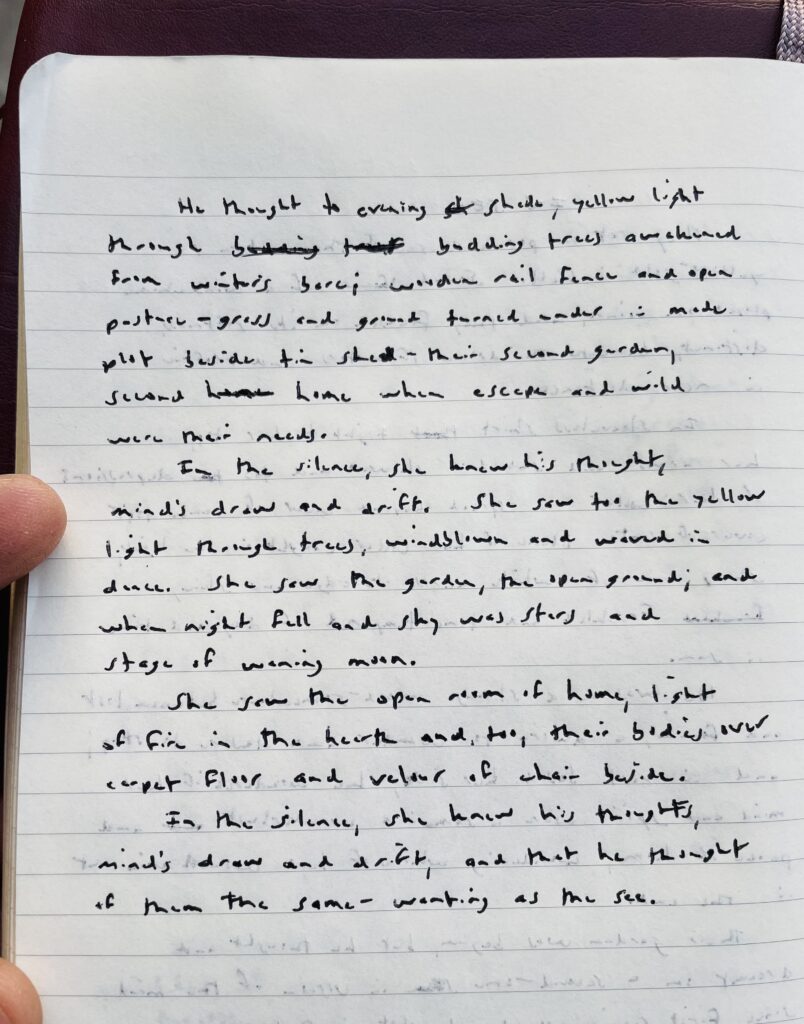 He thought to evening shade, yellow light
through budding trees awakened
from winter's bare; wooden rail fence and open
pasture - grass and ground turned under in made
plot beside tin shed - their second garden,
second home home when escape and wild
were their needs.
In the silence, she knew his thought,
mind's draw and drift. She saw too the yellow
light through trees, windblown and waved in
dance. She saw the garden, the open ground; and
when night fell and sky was stars and
stage of waning moon.
She saw the open room of home, light
of fire in the hearth and, too, their bodies over
carpet floor and velour of chair beside.
In the silence, she knew his thoughts,
mind's draw and drift, and that he thought
of them the same - wanting as the see.